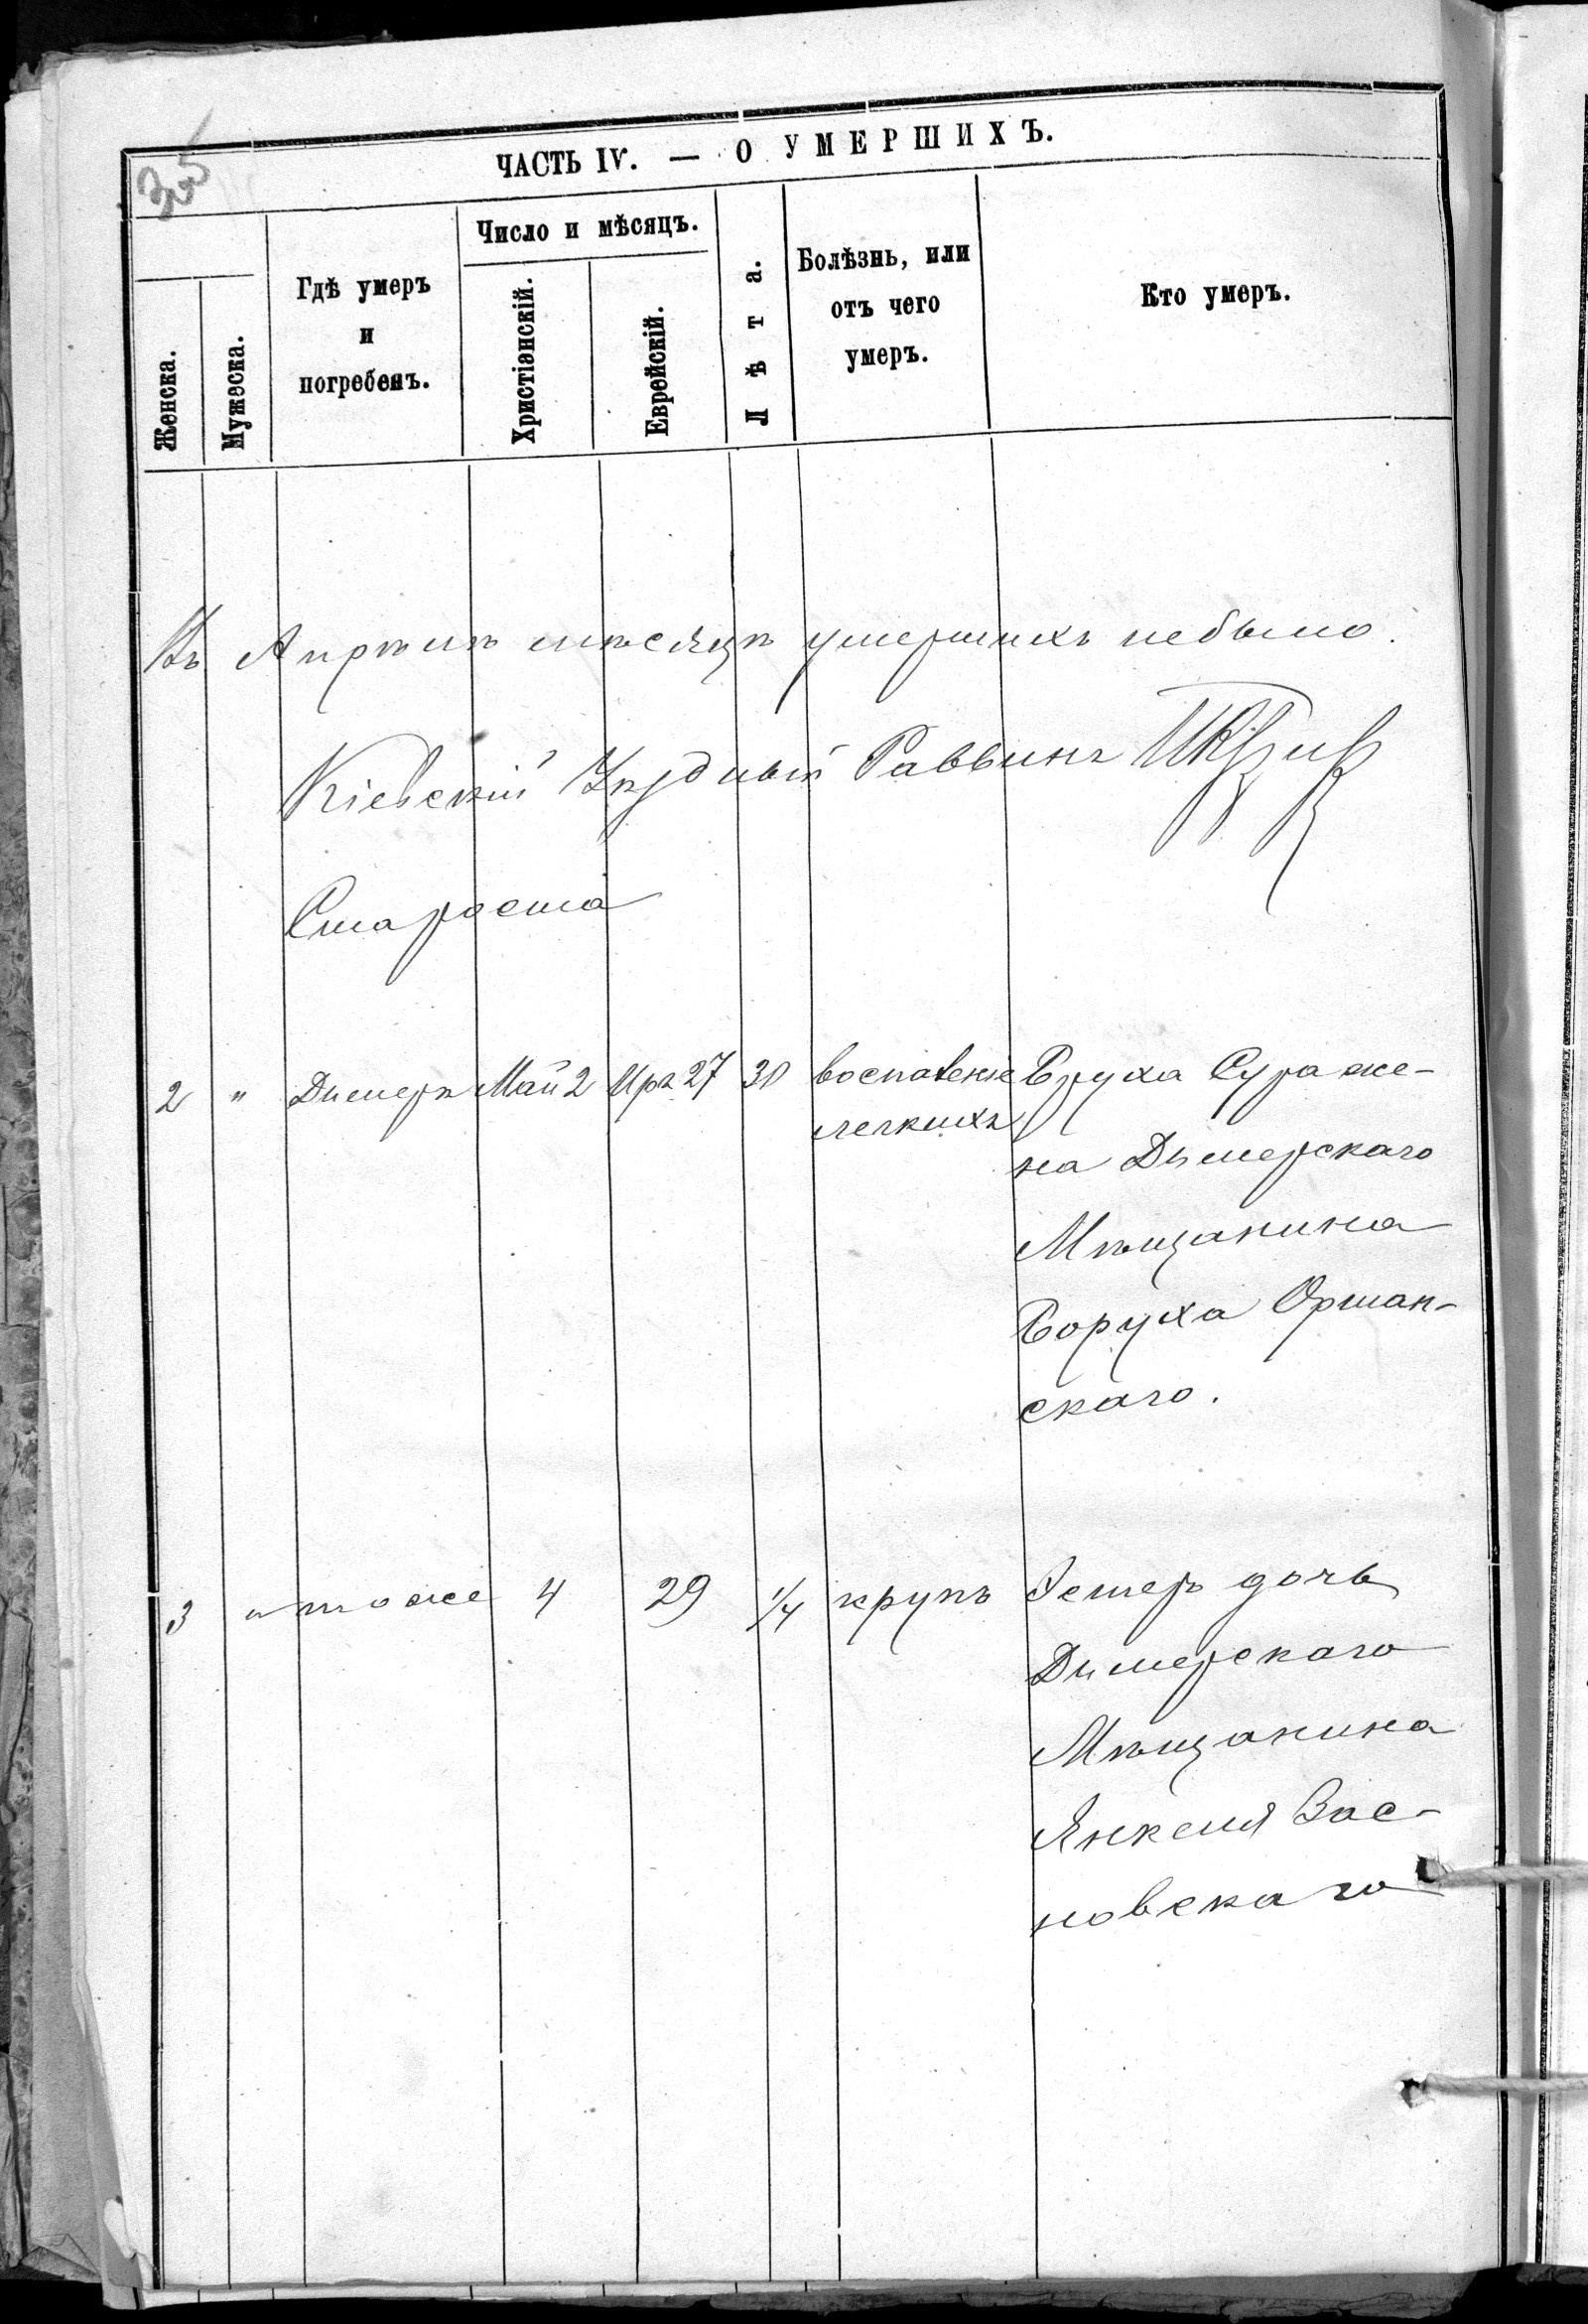 325
ЧАСТЬ IV. — О УМЕРШИХЪ.
Женска.
Мужеска.
Гдѣ умеръ
и
погребенъ.
Число и мѣсяцъ.
Христіанскій.
Еврейскій.
Лѣта.
Болѣзнь, или
отъ чего
умеръ.
Кто умеръ.
Въ Апрѣлѣ мѣсяцѣ умершихъ небыло.
Кіевскій Уѣздный Раввинъ
Староста
2 " Дымеръ Май 2 Иръ 27 30 воспаленіе Бруха Сура же-
легкихъ
на Дымерскаго
Мѣщанина
Боруха Оршан-
скаго.
3 " тоже 4 29 1/4 крупъ Эстеръ дочь
Дымерскаго
Мѣщанина
Янкеля Зас-
новскаго